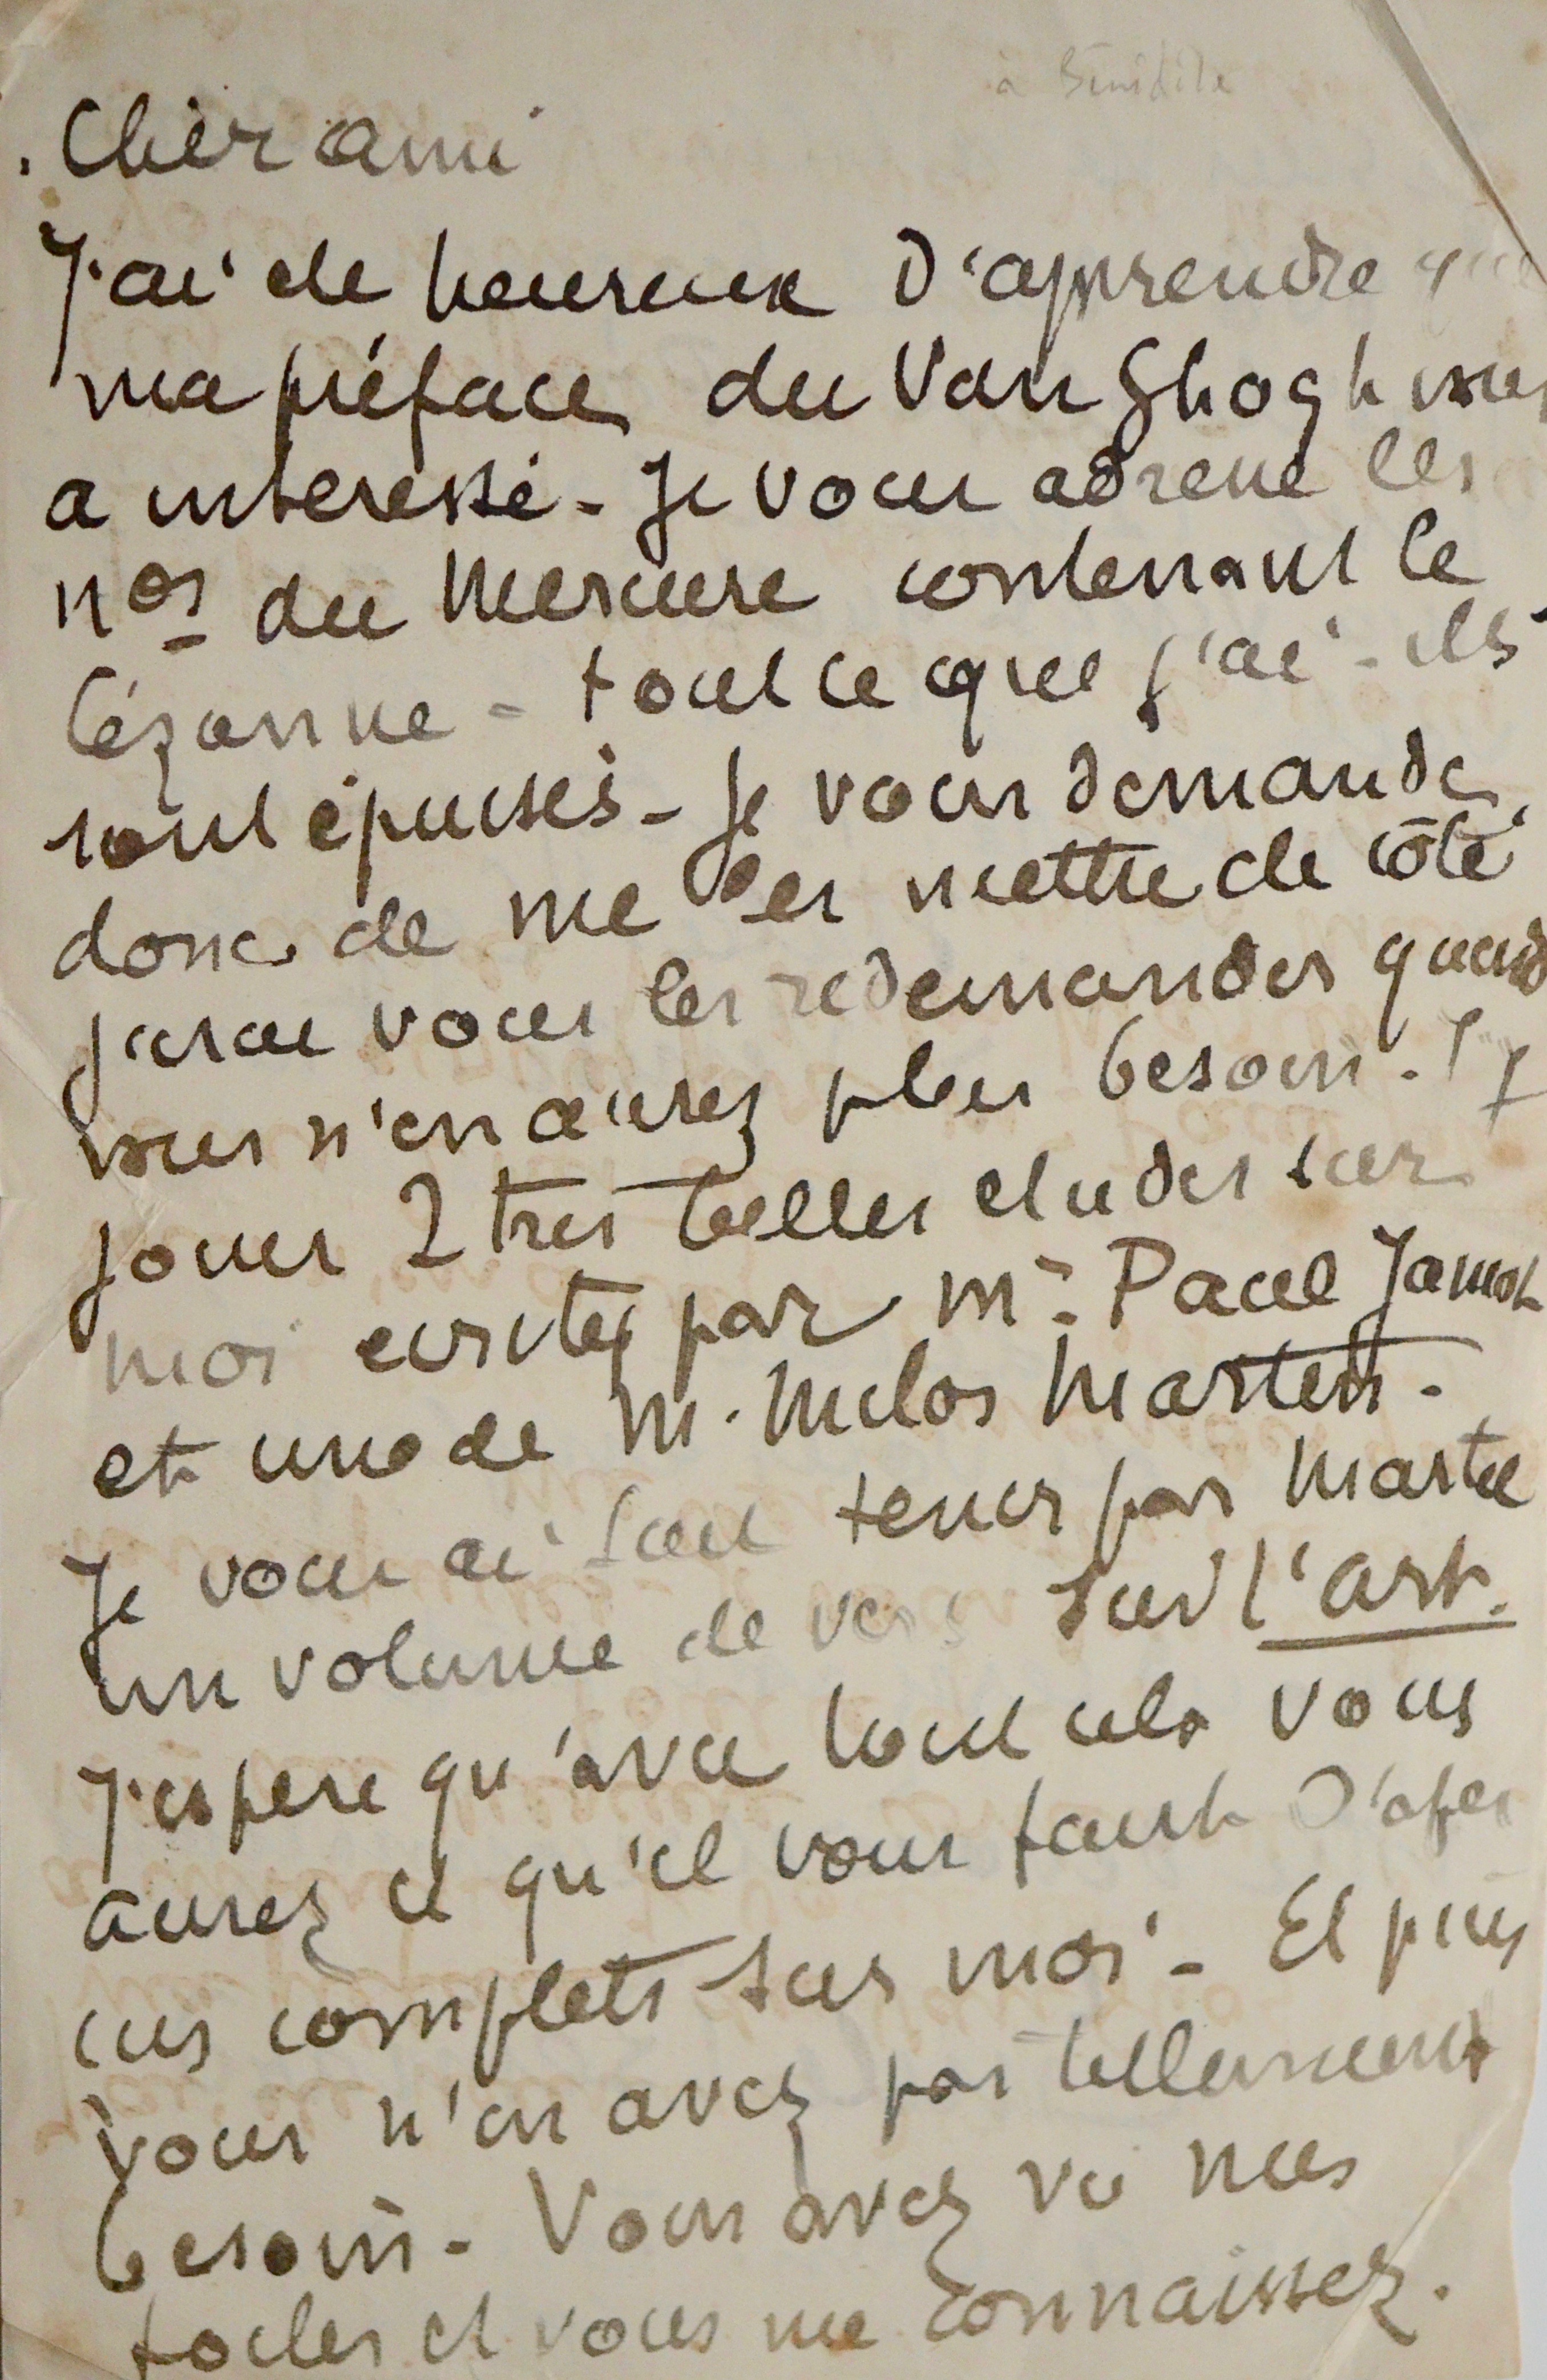 à Bénédite
Cher ami
J'ai ete heureux d'apprendre que
ma préface du Van Ghogh vous
a interessé - Je vous adresse les
nos du Mercure contenant le
Cézanne - tout ce que j'ai - ils
sont épuisés - Je vous demande
donc de me les mettre de côté
j'irai vous les redemander quand
vous n'en aurez plus besoin.
Joins 2 tres belles etudes sur
moi ecrites par Mr Paul Jamot
et une de M. Milos Marten -
Je vous ai fait tenir par Martel
un volume de vers sur l'art.
J'espere qu'avec tout cela vous
aurez ce qu'il vous faut d'aper
cus complets sur moi - Et puis
vous n'en avez pas tellement
besoin - Vous avez vu mes
toiles et vous me connaissez.